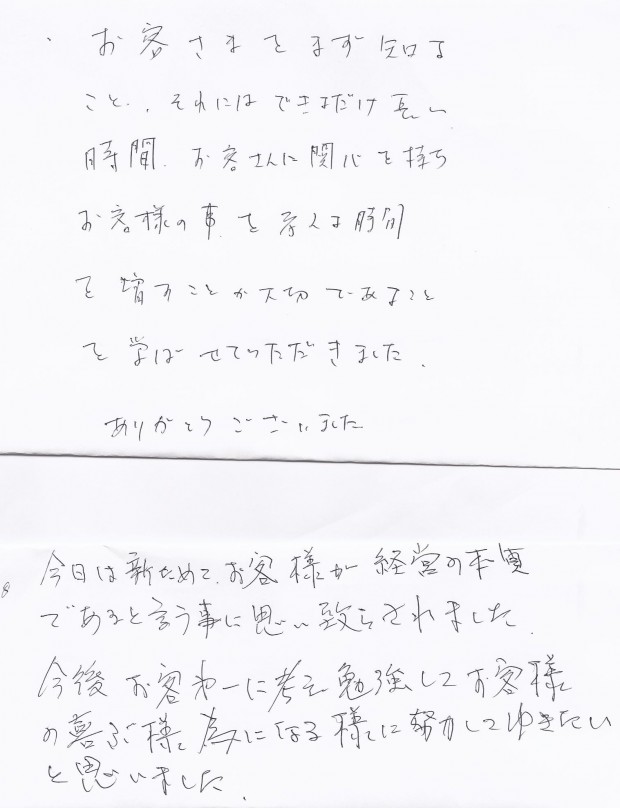 ・お客さまをまず知る
こと、それにはできるだけ長い
時間、お客さんに関心を持ち
お客様の事を考える時間
を増すことが大切であること
を学ばせていただきました。
ありがとうございました
今日は新ためて、お客様が経営の本質
であると言う事に思い致らされました。
今後お客第一に考え勉強してお客様
の喜ぶ様、為になる様に努力してゆきたい
と思いました。